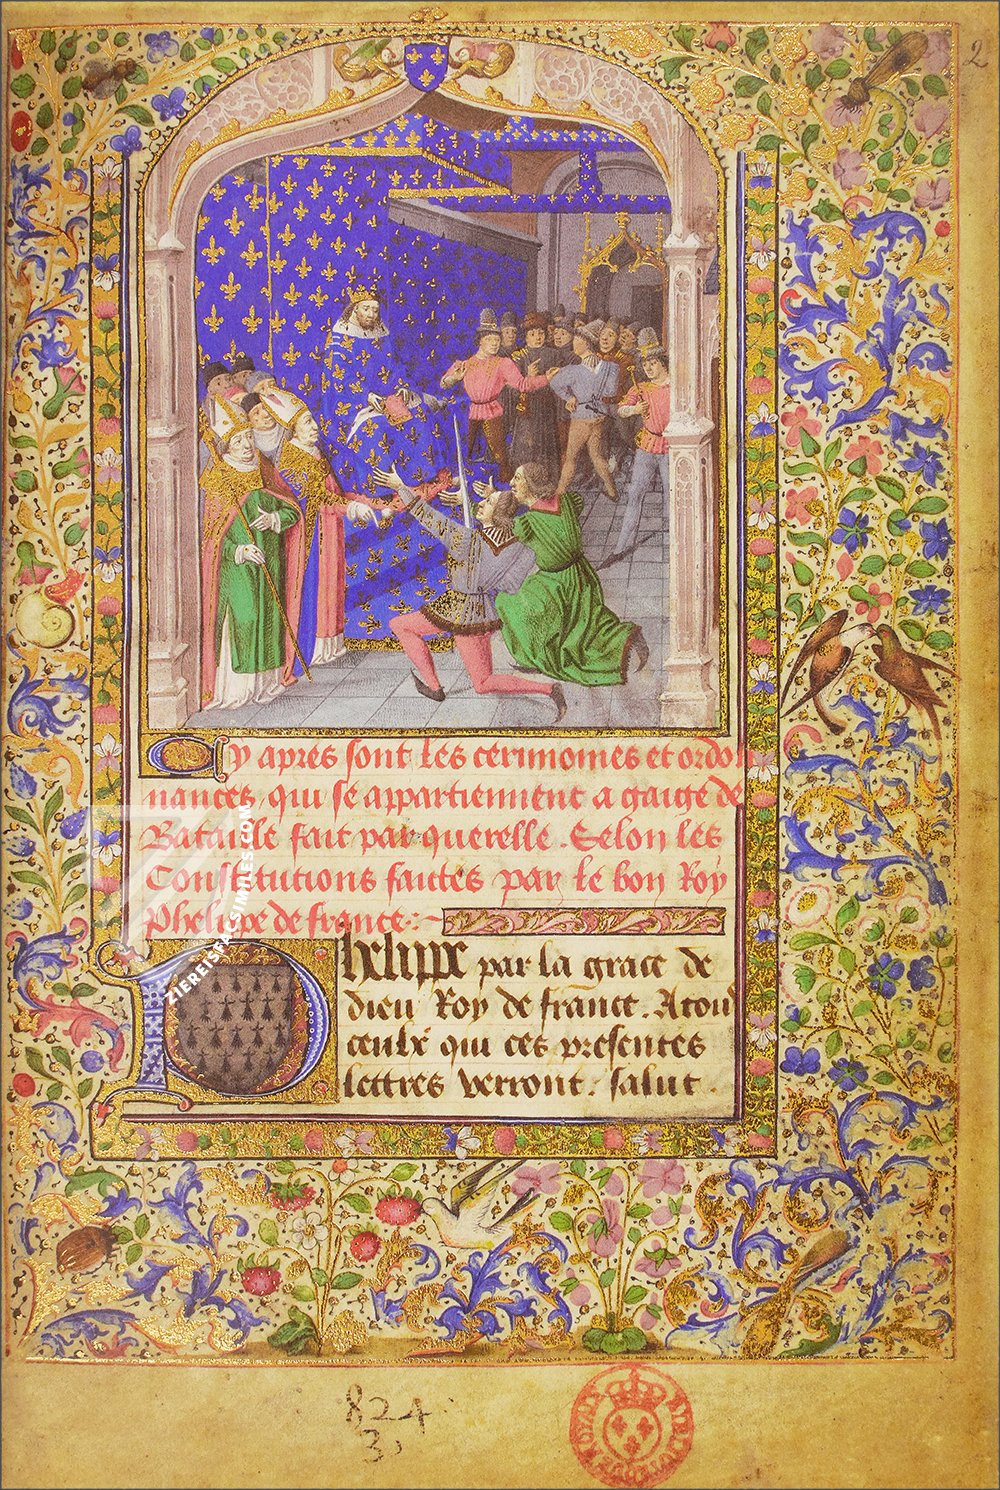 2
Cy apres sont les cerimonies et ordon
nances, qui se appartiennent a gaige de
Bataille fait par querelle. Selon les
Constitutions faictes par le bon Roy
Phelippe de france :~
Phelippe par la grace de
dieu Roy de france. A tous
ceulx qui ces presentes
lettres verront. salut.
ZIEREISFACSIMILES.COM
824
3